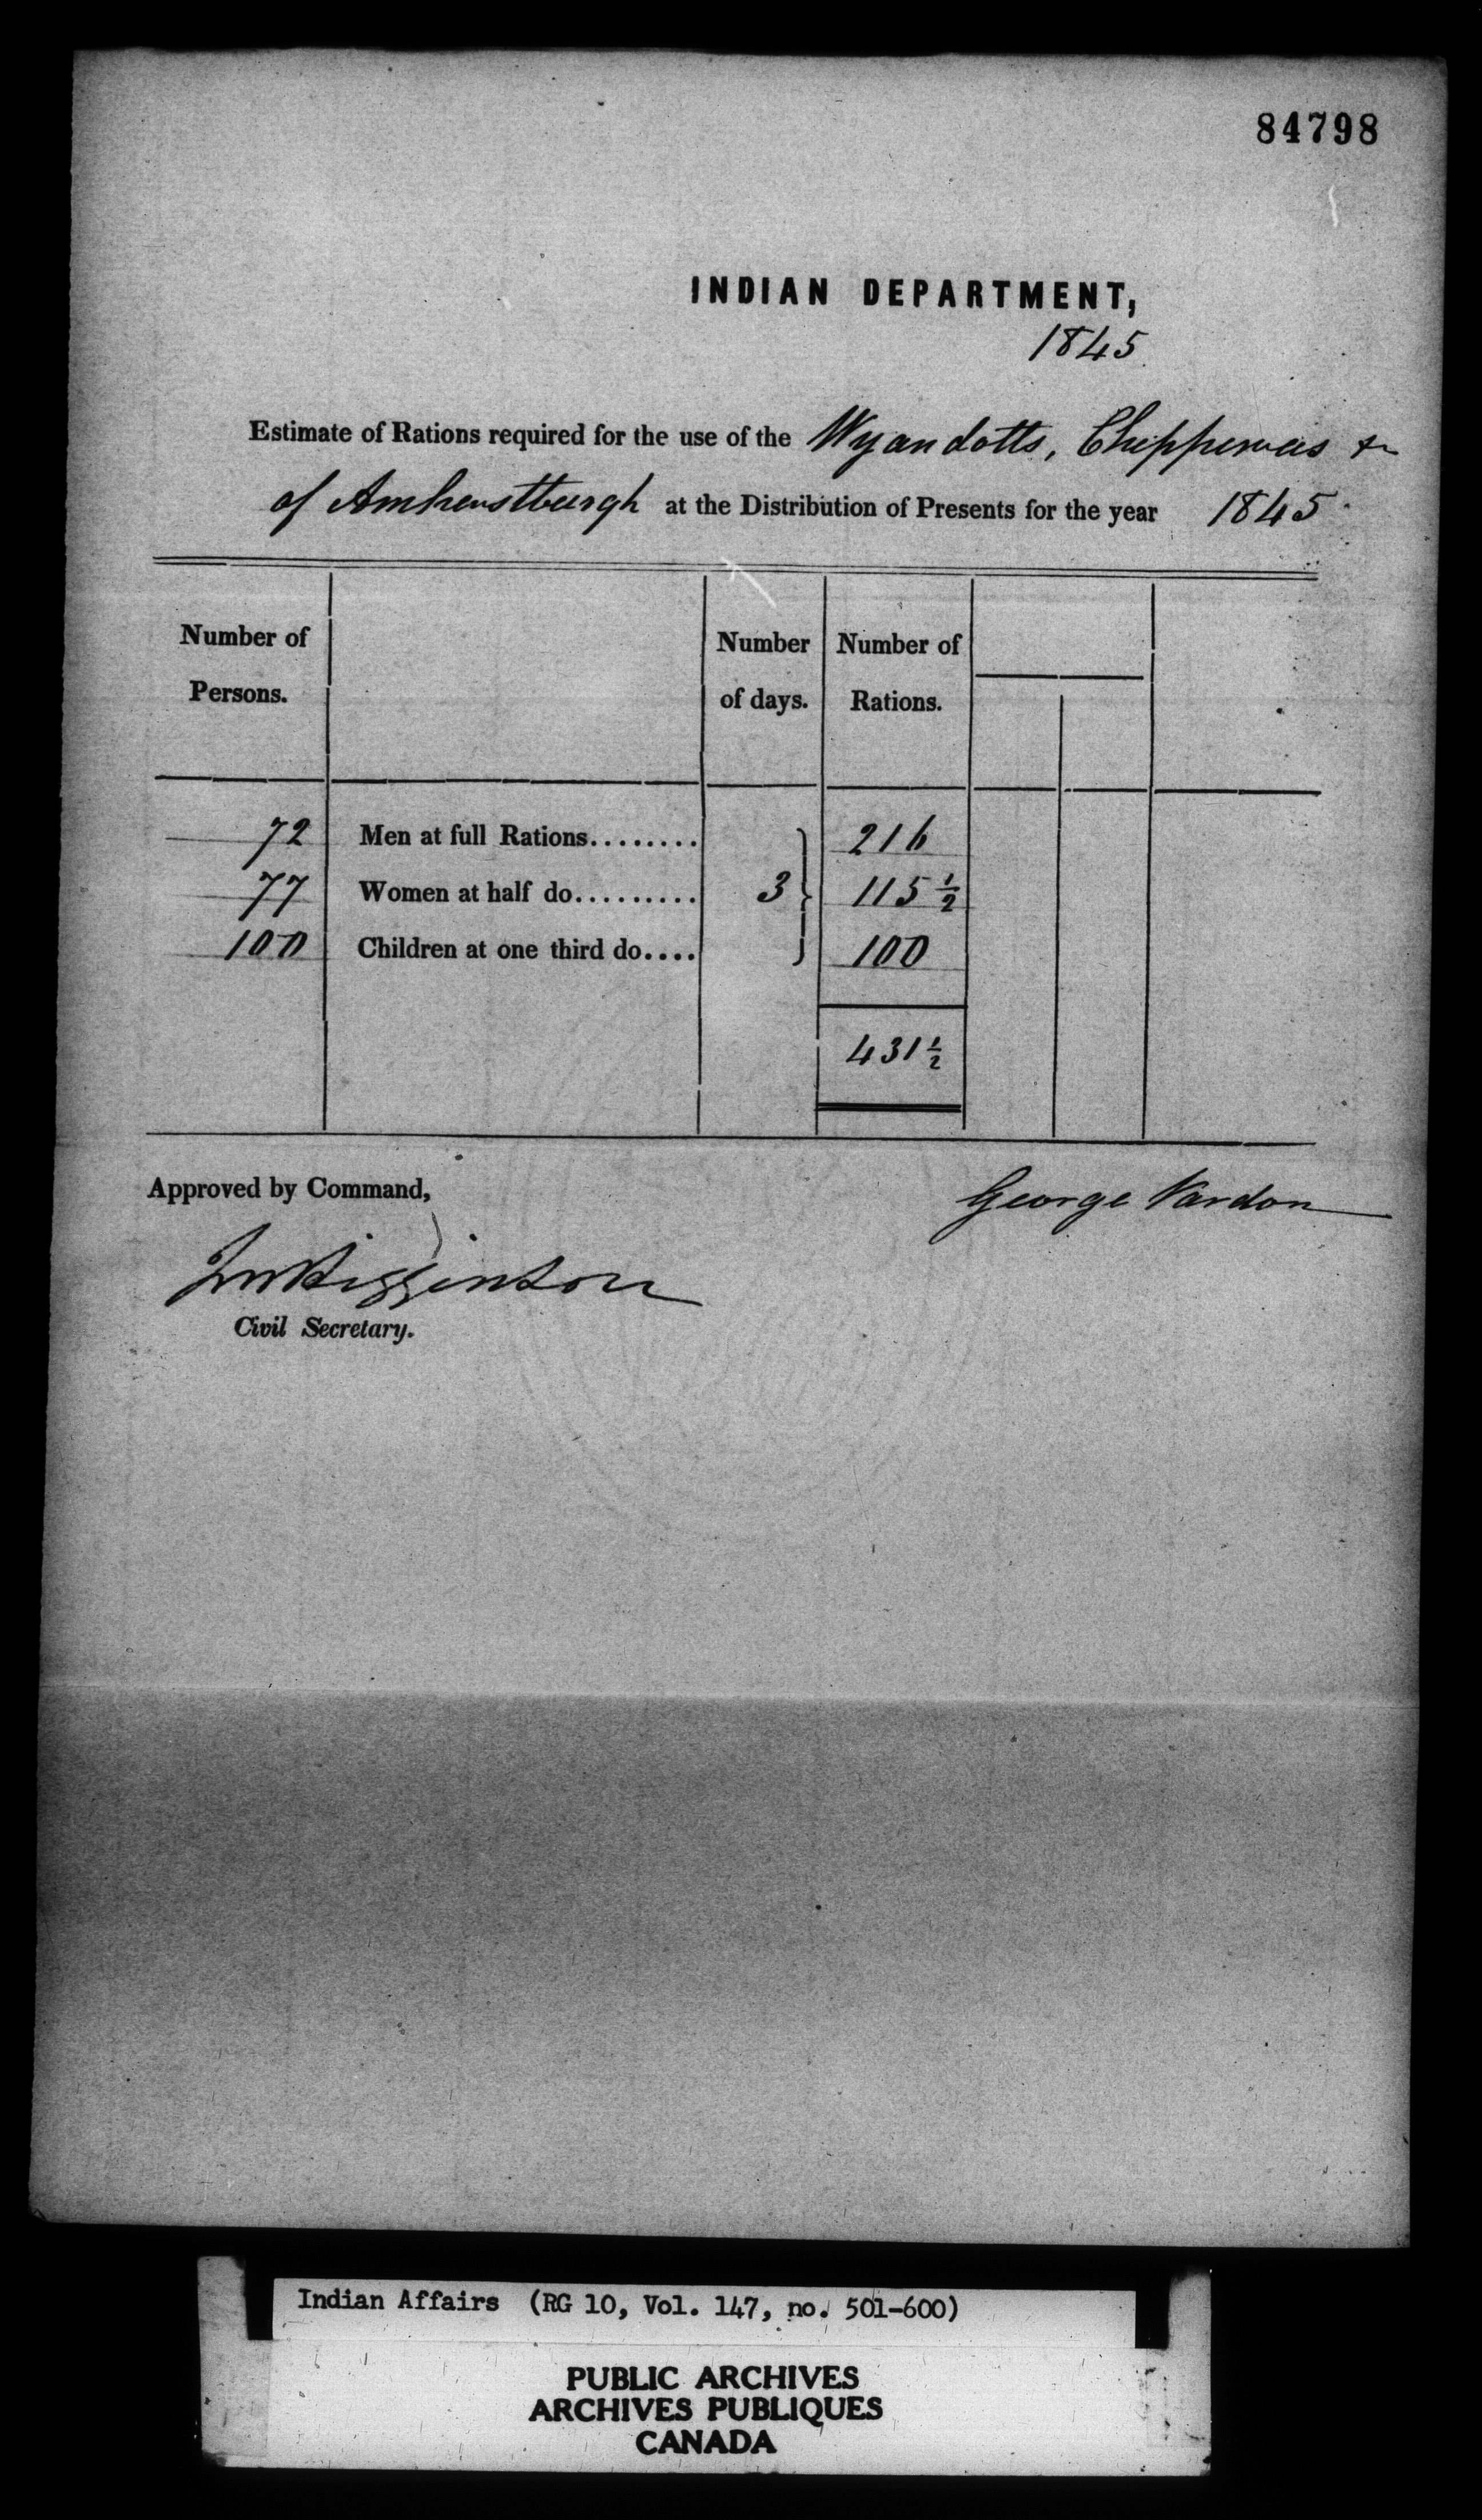 84798
INDIAN DEPARTMENT,
1845
Estimate of Rations required for the use of the Wyandotts, Chippewas &
of Amherstburgh at the Distribution of Presents for the year 1845
Number of Persons. Number of days. Number of Rations.
72 Men at full Rations......... 216
77 Women at half do.......... 3 115 1/2
100 Children at one third do.... 100
431 1/2
Approved by Command, George Vardon
JM Higginson
Civil Secretary.
Indian Affairs (RG 10, Vol. 147, no. 501-600)
PUBLIC ARCHIVES
ARCHIVES PUBLIQUES
CANADA